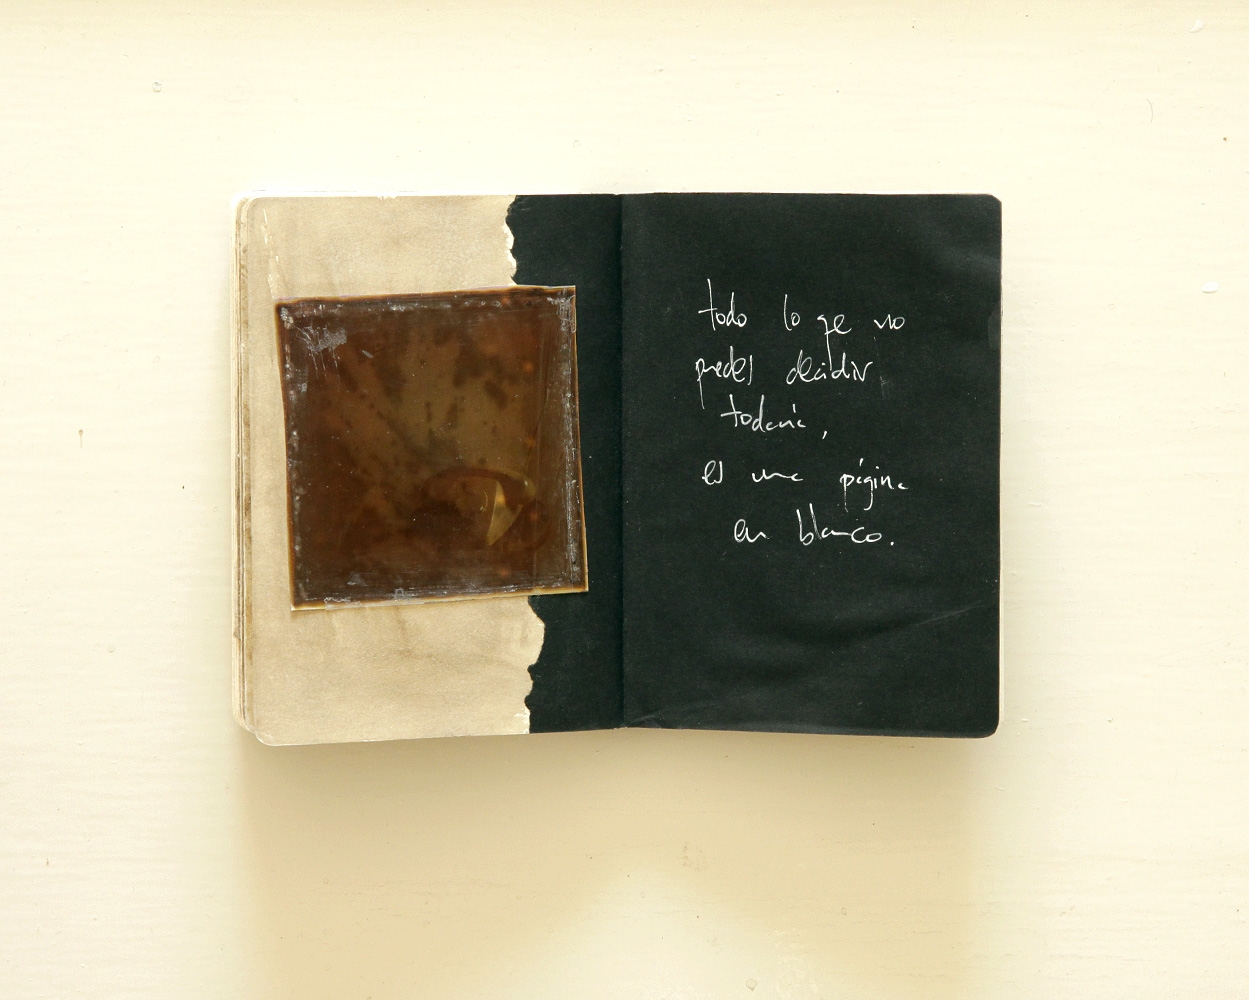 todo lo qe no
puedes decidir
todavía,
es una página
en blanco.